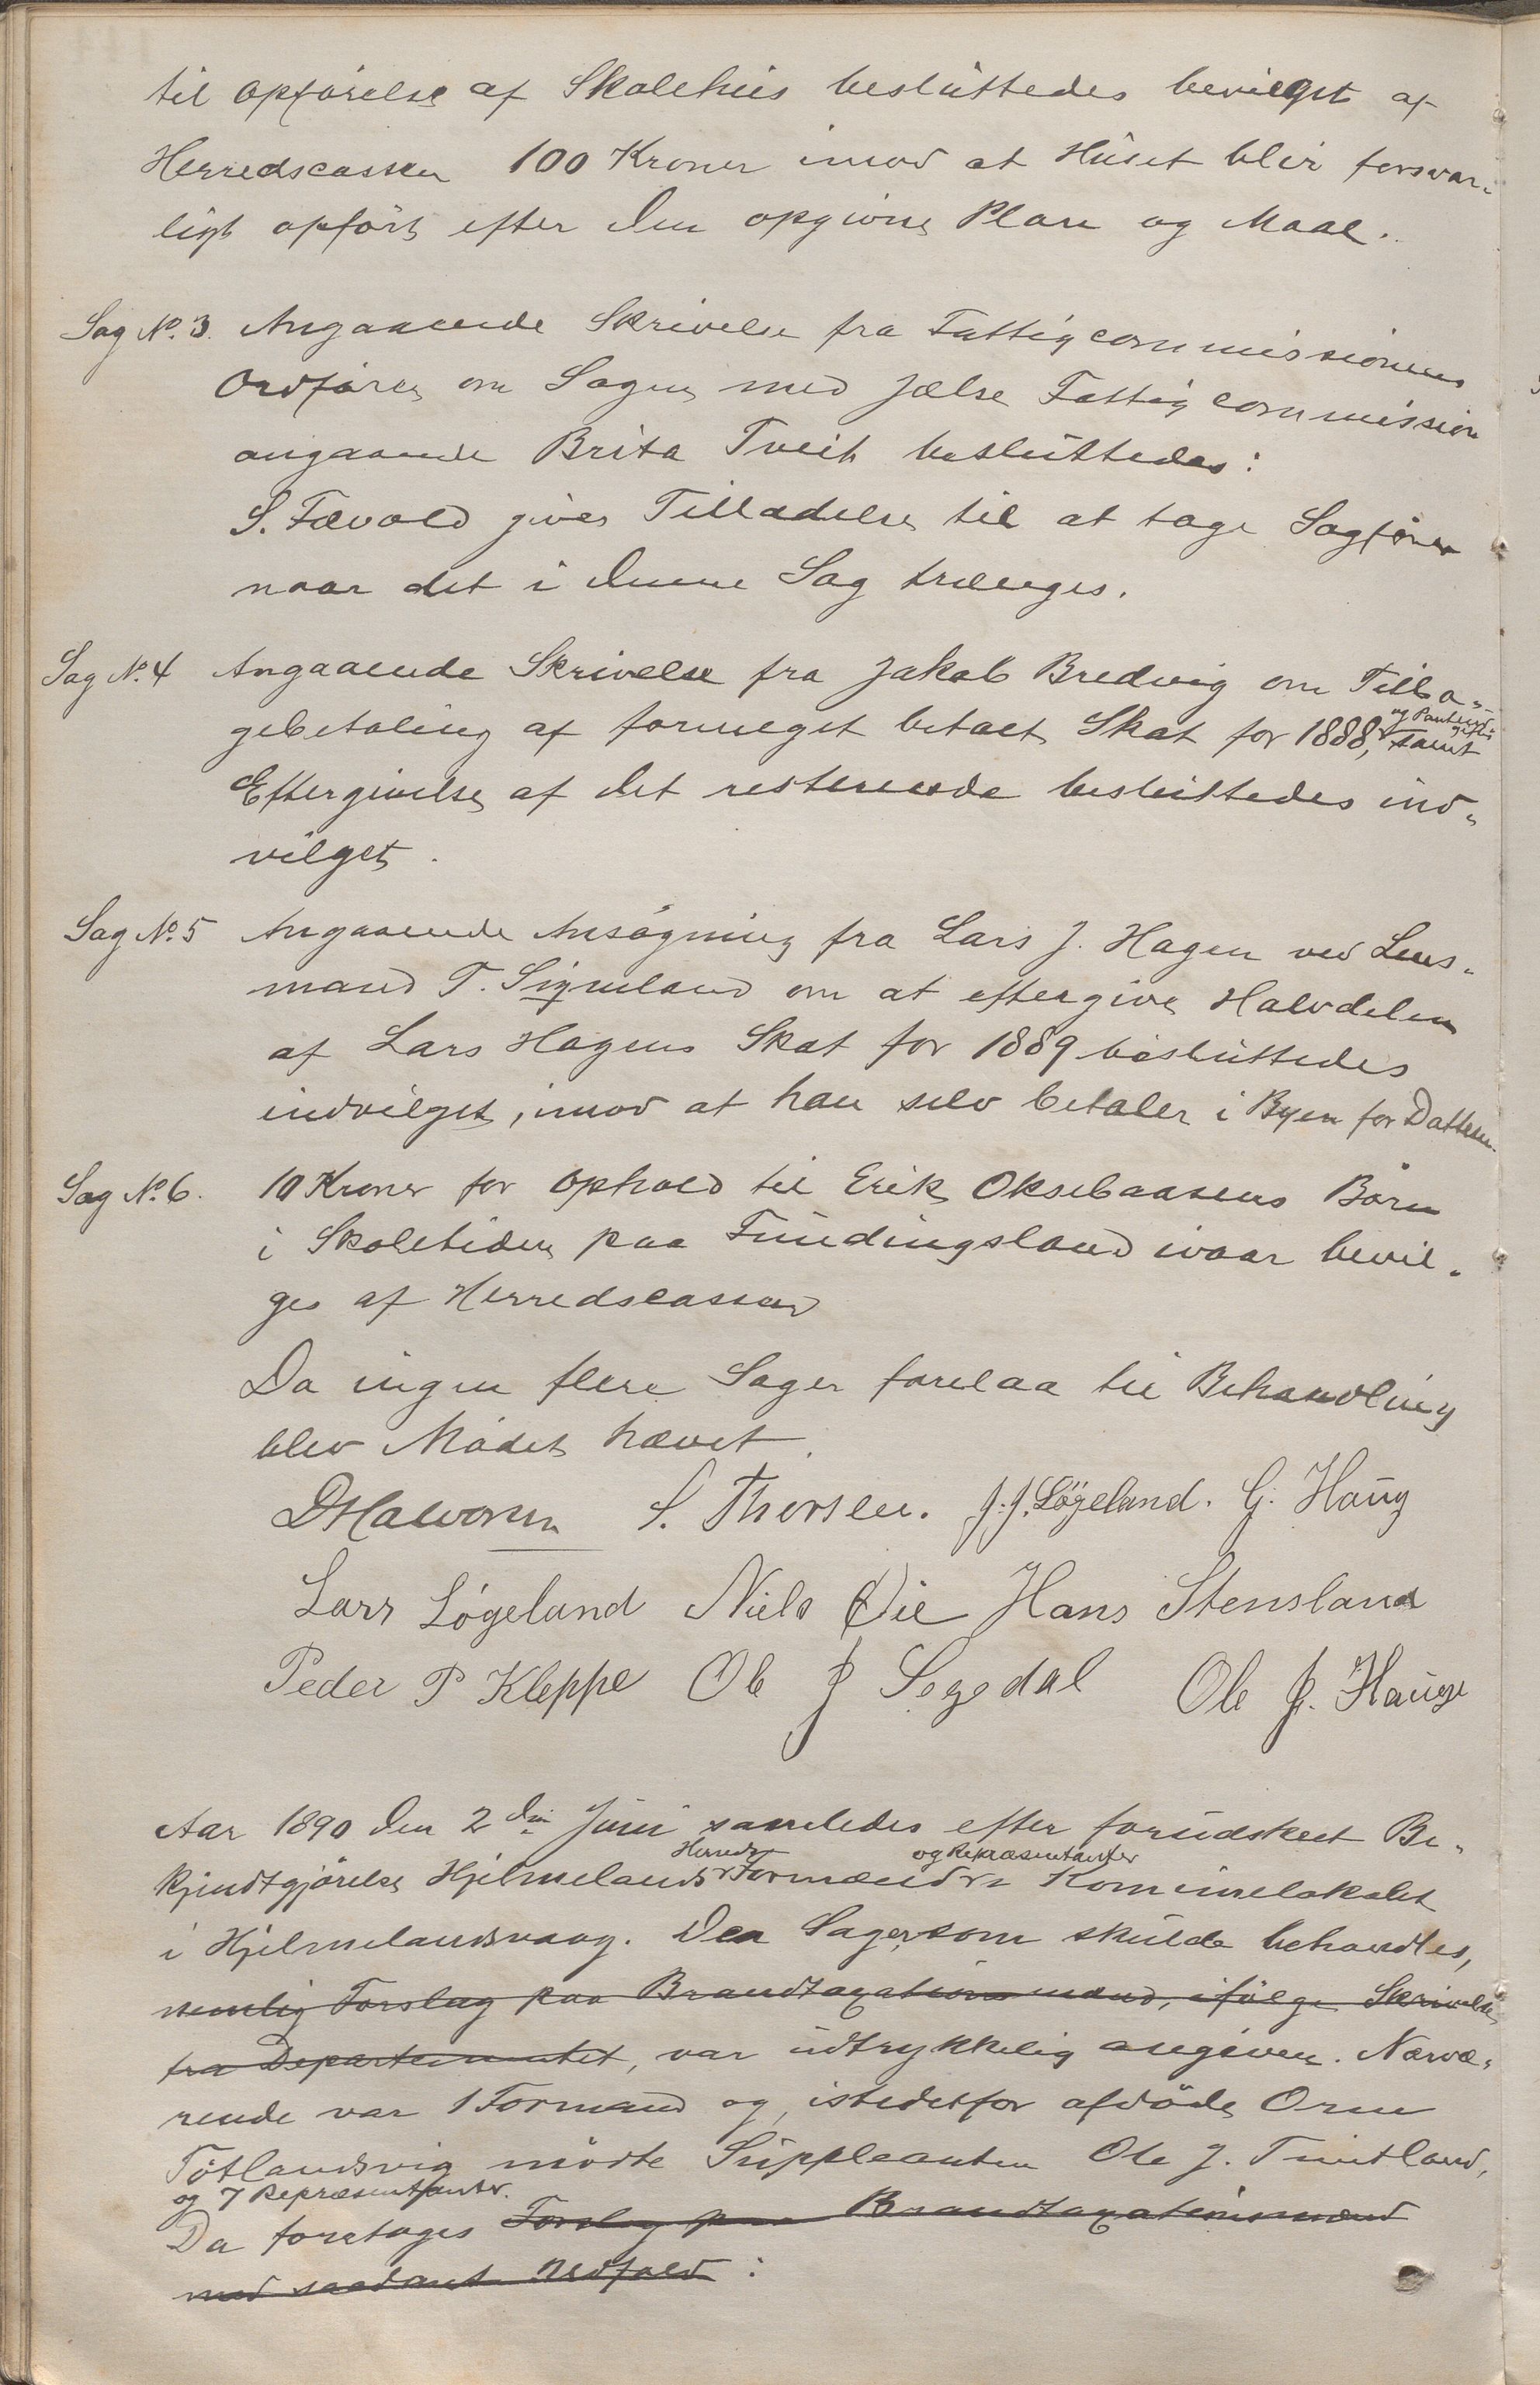 til Opførelse af Skolehus besluttedes bevilget af
Herredscassen 100 Kroner imod at Huset blir forsvar-
ligt opført efter den opgivne Plan og Maal.
Sag No. 3. Angaaende Skrivelse fra Fattigcommissionens
Ordfører om Sagen med Jælse Fattigcommission
angaaende Brita Tveit besluttedes:
S. Fævold gives Tilladelse til at tage Sagfører
naar det i denne Sag trænges.
Sag No. 4 Angaaende Skrivelse fra Jakob Bredvig om Tilba-
gebetaling af formeget betalt Skat for 1888, samt
Eftergivelse af det resterende besluttedes ind-
vilget.
Sag No. 5 Angaaende Ansøgning fra Lars J. Hagen ved Lens-
mand T. Sigmeland om at eftergive Halvdelen
af Lars Hagens Skat for 1889 besluttedes
indvilget, imod at han selv betaler i Byen for Datteren.
Sag No. 6. 10 Kroner for Ophold til Erik Oksebaasens Børn
i Skoletiden paa Fundingsland ivaar bevil-
ges af Herredscassen
Da ingen flere Sager forelaa til Behandling
blev Mødet hævet.
S. Thorsen. J. J. Løgeland. G. Haug
Lars Løgeland Niels Øie Hans Stensland
Peder P Kleppe Ole J Segedal Ole J. Hauge
Aar 1890 den 2den Juni samledes efter forudskeet Be-
Herreds og Repræsentanter
kjendtgjørelse Hjelmelands Formænd i Kommunelokalet
i Hjelmelandsvaag. Den Sager, som skulde behandles,
nemlig Forslag paa Brandtaxationsmænd, ifølge Skrivelse
fra Departementet, var udtrykkelig angiven. Nærvæ-
rende var 1 Formand og, istedetfor afdøde Orm
Tøtlandsvig mødte Suppleanten Ole J. Tuntland,
og 7 Repræsentanter.
Da foretoges Forslag paa Brandtaxationsmænd
med saadant Udfald: